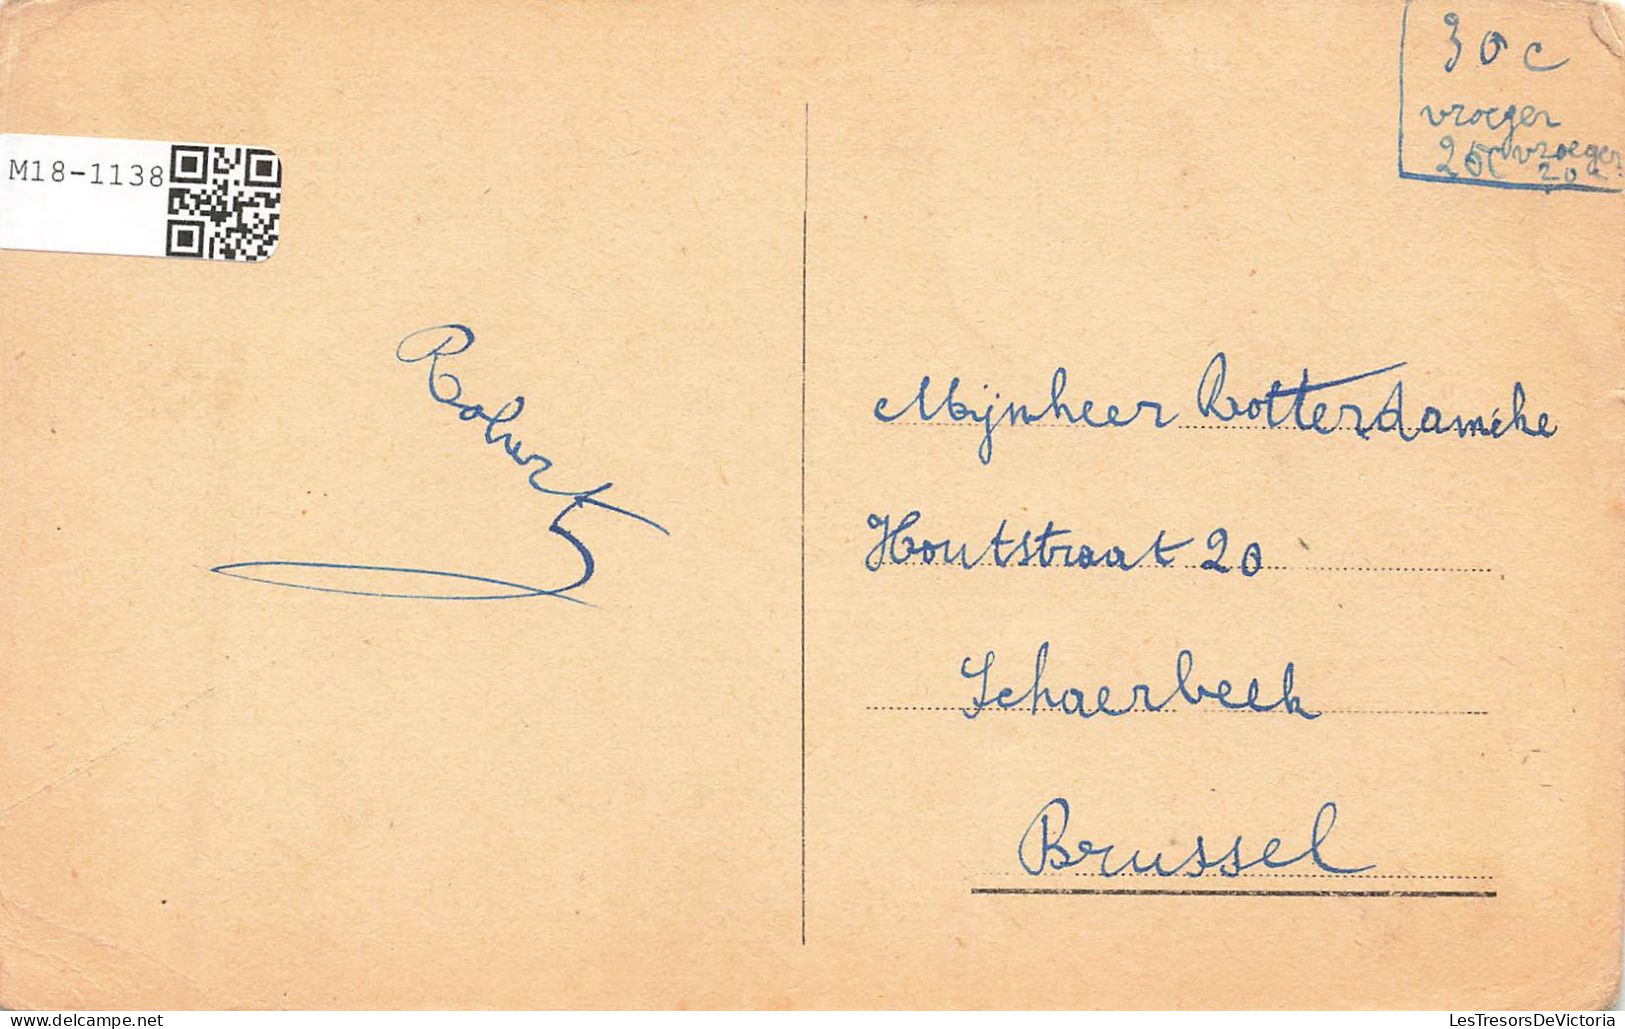 M18-1138
30 c
vroeger
25c vroeger
20c
Robert
Mijnheer Rotterdamche
Houtstraat 20
Schaerbeek
Brussel
LesTresorsDeVictoria